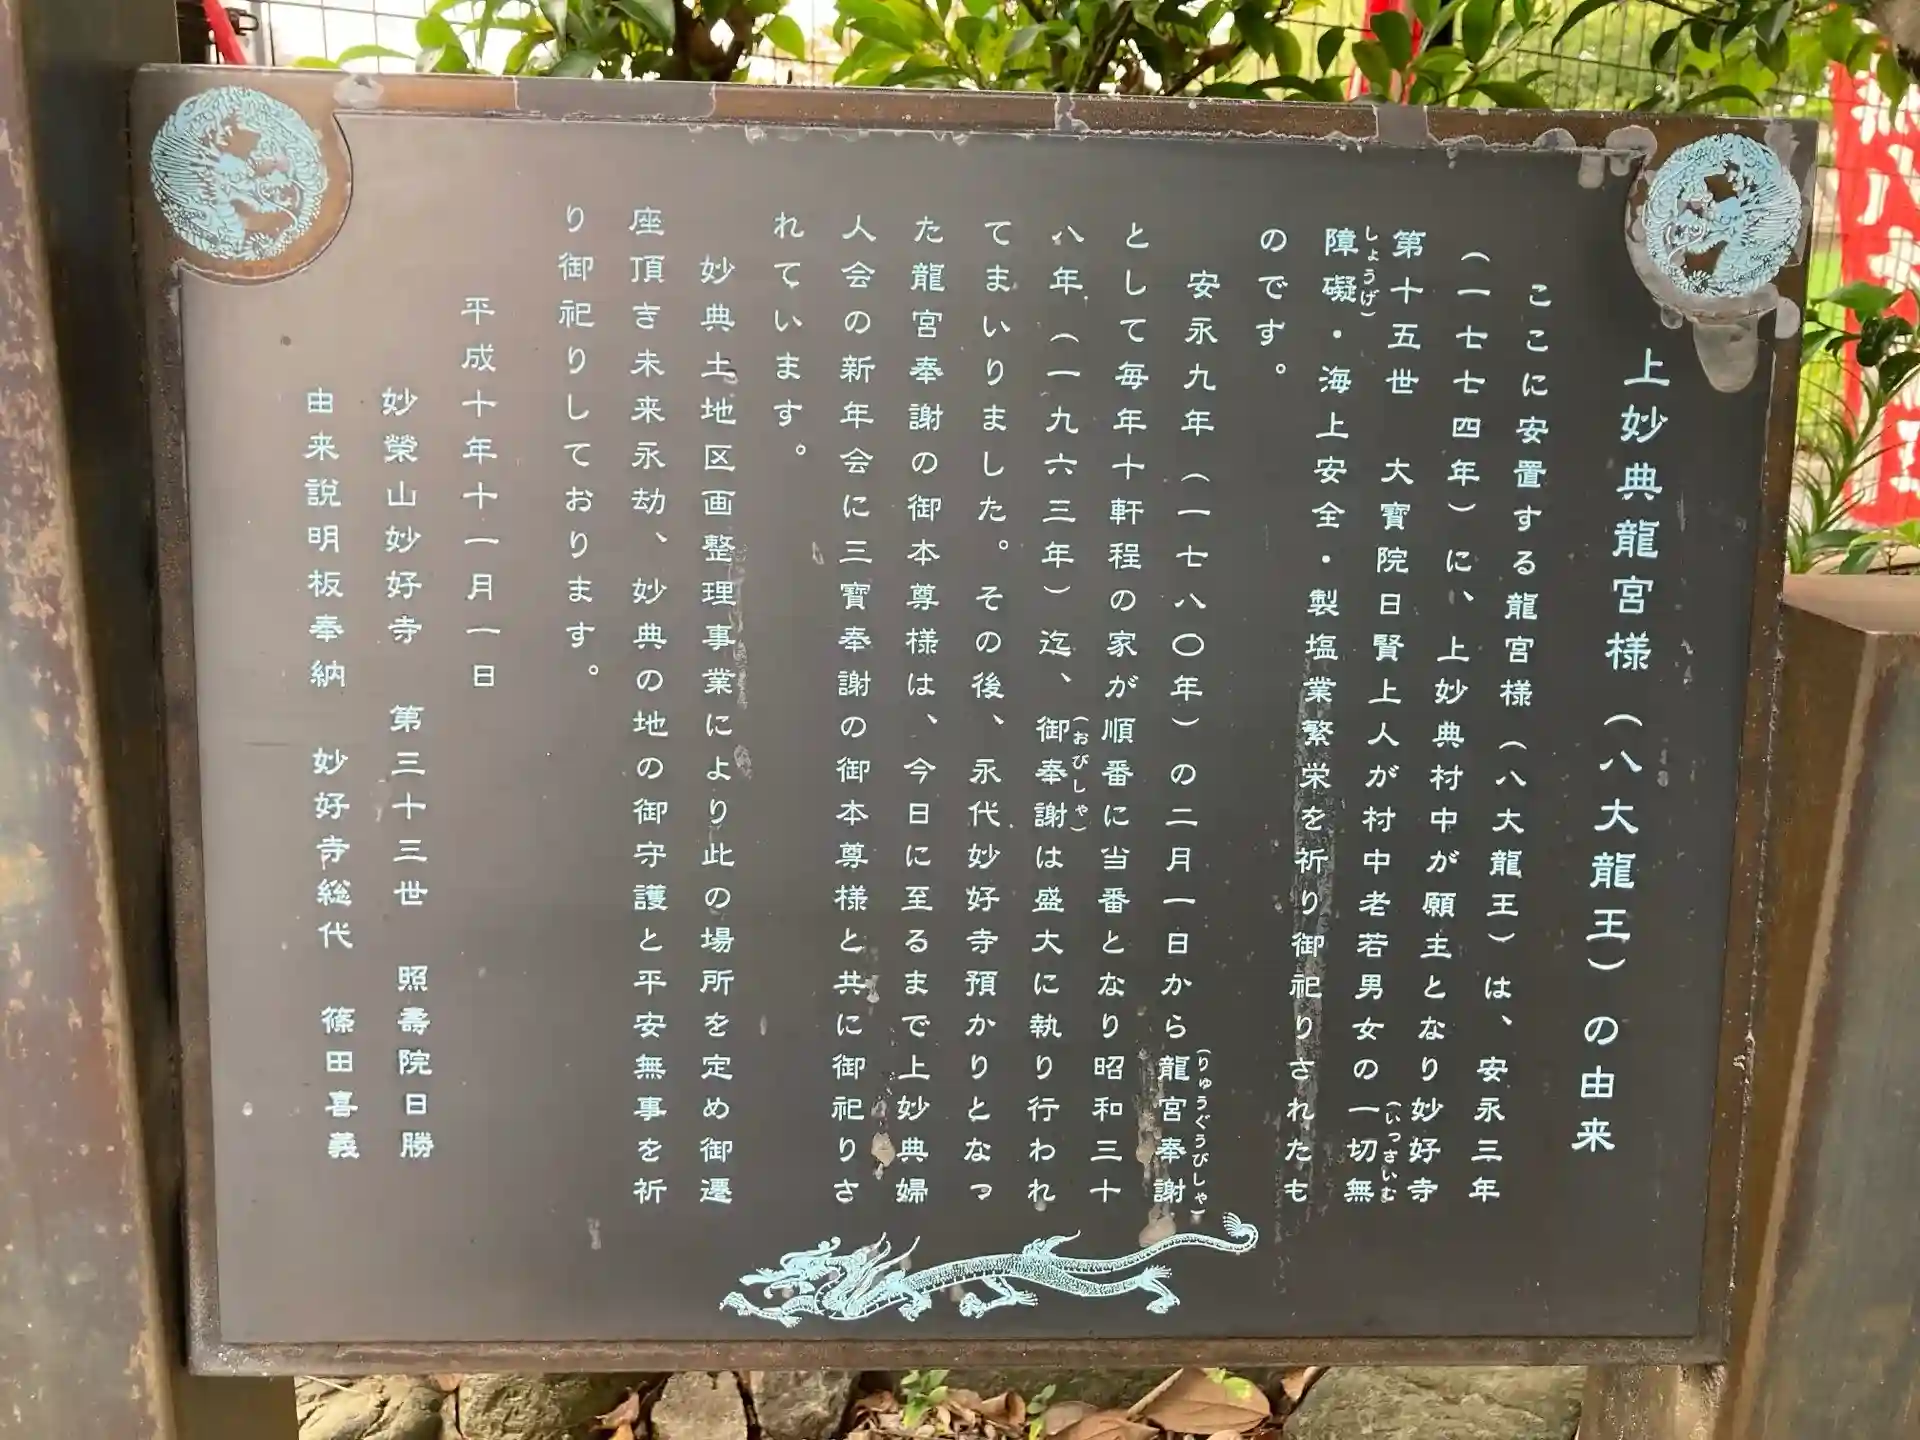 上妙典龍宮様（八大龍王）の由来
ここに安置する龍宮様（八大龍王）は、安永三年
（一七七四年）に、上妙典村中が願主となり妙好寺
第十五世　大寳院日賢上人が村中老若男女の一切無(いっさいむ
障礙しょうげ)・海上安全・製塩業繁栄を祈り御祀りされたも
のです。
安永九年（一七八〇年）の二月一日から龍宮奉謝(りゅうぐうびしゃ)
として毎年十軒程の家が順番に当番となり昭和三十
八年（一九六三年）迄、御奉謝(おびしゃ)は盛大に執り行われ
てまいりました。その後、永代妙好寺預かりとなっ
た龍宮奉謝の御本尊様は、今日に至るまで上妙典婦
人会の新年会に三寳奉謝の御本尊様と共に御祀りさ
れています。
妙典土地区画整理事業により此の場所を定め御遷
座頂き未来永劫、妙典の地の御守護と平安無事を祈
り御祀りしております。
平成十年十一月一日
妙榮山妙好寺　第三十三世　照壽院日勝
由来説明板奉納　妙好寺総代　篠田喜義